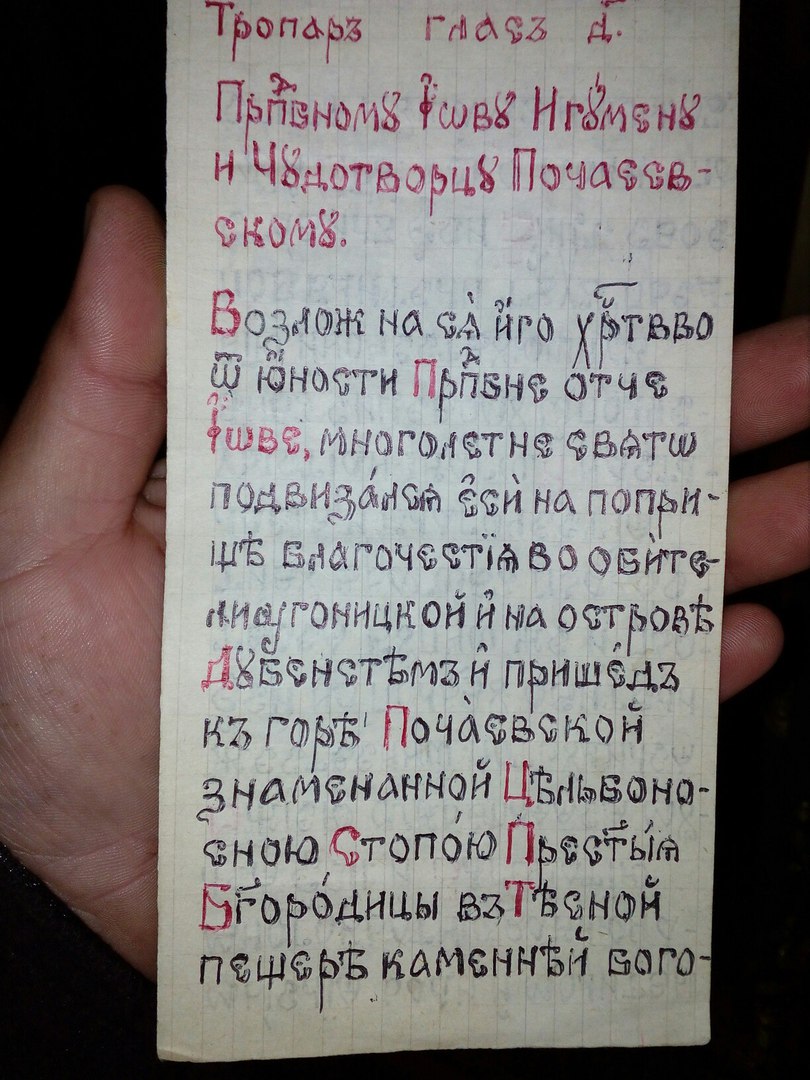 Тропаръ гласъ д҃.
Прпⷣбному Їѡву Игꙋ́мену
и Чꙋдотворцꙋ Почаевъ-
скомꙋ.
Возлож на сѧ̀ и҆́го хрⷭ҇тво
ѿ ю҆́ности Прпⷣбне ѻтче
Їѡве, многолетне свѧтѡ
подвиза́лсѧ є҆сѝ на попри-
щѣ благочестїѧ во ѻби́те-
ли угоницкой и҆ на островѣ
Дꙋбенстѣмъ и҆ прише́дъ
къ горѣ Поча̀евской
знаменанной Цѣльбоно-
сною Стопо́ю Прест҃ы́ѧ
Бг҃оро́дицы въ Тѣсной
пещерѣ каменнѣй бого-